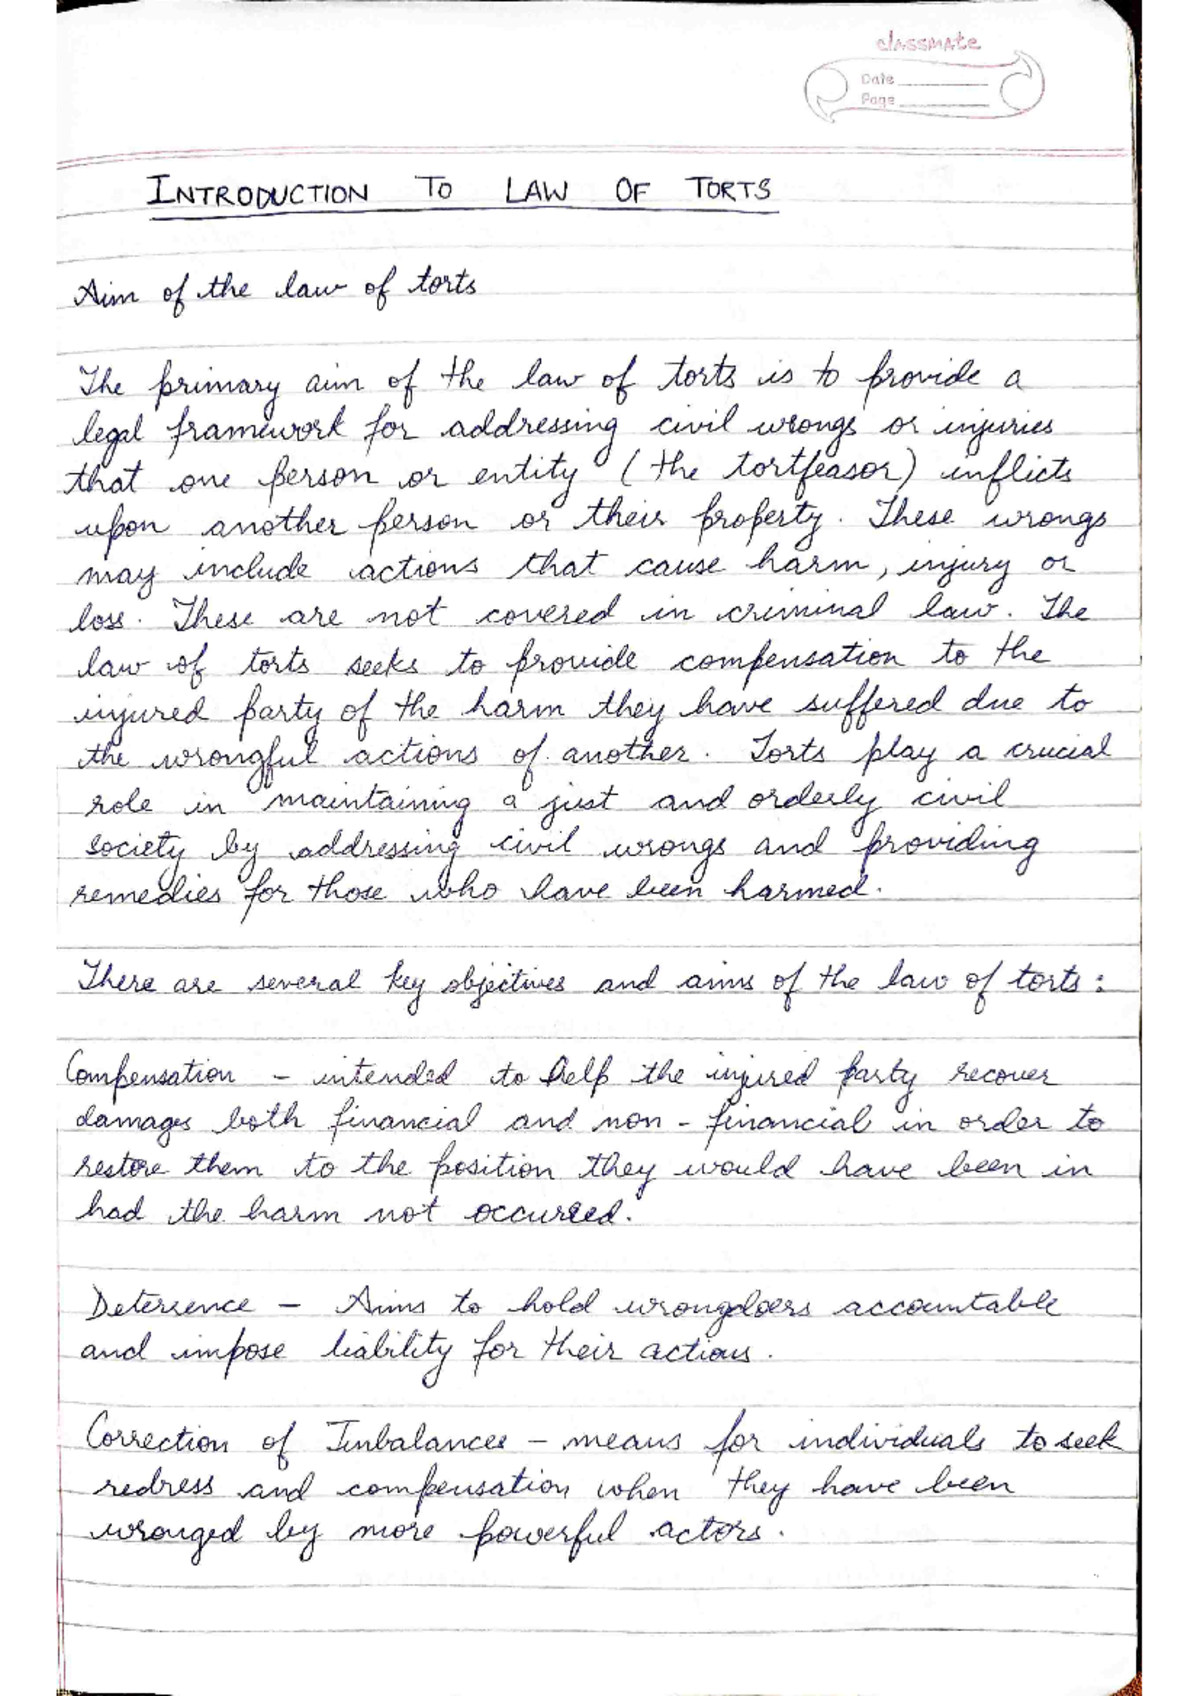 classmate
Date
Page
INTRODUCTION TO LAW OF TORTS
Aim of the law of torts
The primary aim of the law of torts is to provide a
legal framework for addressing civil wrongs or injuries
that one person or entity (the tortfeasor) inflicts
upon another person or their property. These wrongs
may include actions that cause harm, injury or
loss. These are not covered in criminal law. The
law of torts seeks to provide compensation to the
injured party of the harm they have suffered due to
the wrongful actions of another. Torts play a crucial
role in maintaining a just and orderly civil
society by addressing civil wrongs and providing
remedies for those who have been harmed.
There are several key objectives and aims of the law of torts:
Compensation - intended to help the injured party recover
damages both financial and non-financial in order to
restore them to the position they would have been in
had the harm not occurred.
Deterrence - Aims to hold wrongdoers accountable
and impose liability for their actions.
Correction of Imbalances - means for individuals to seek
redress and compensation when they have been
wronged by more powerful actors.